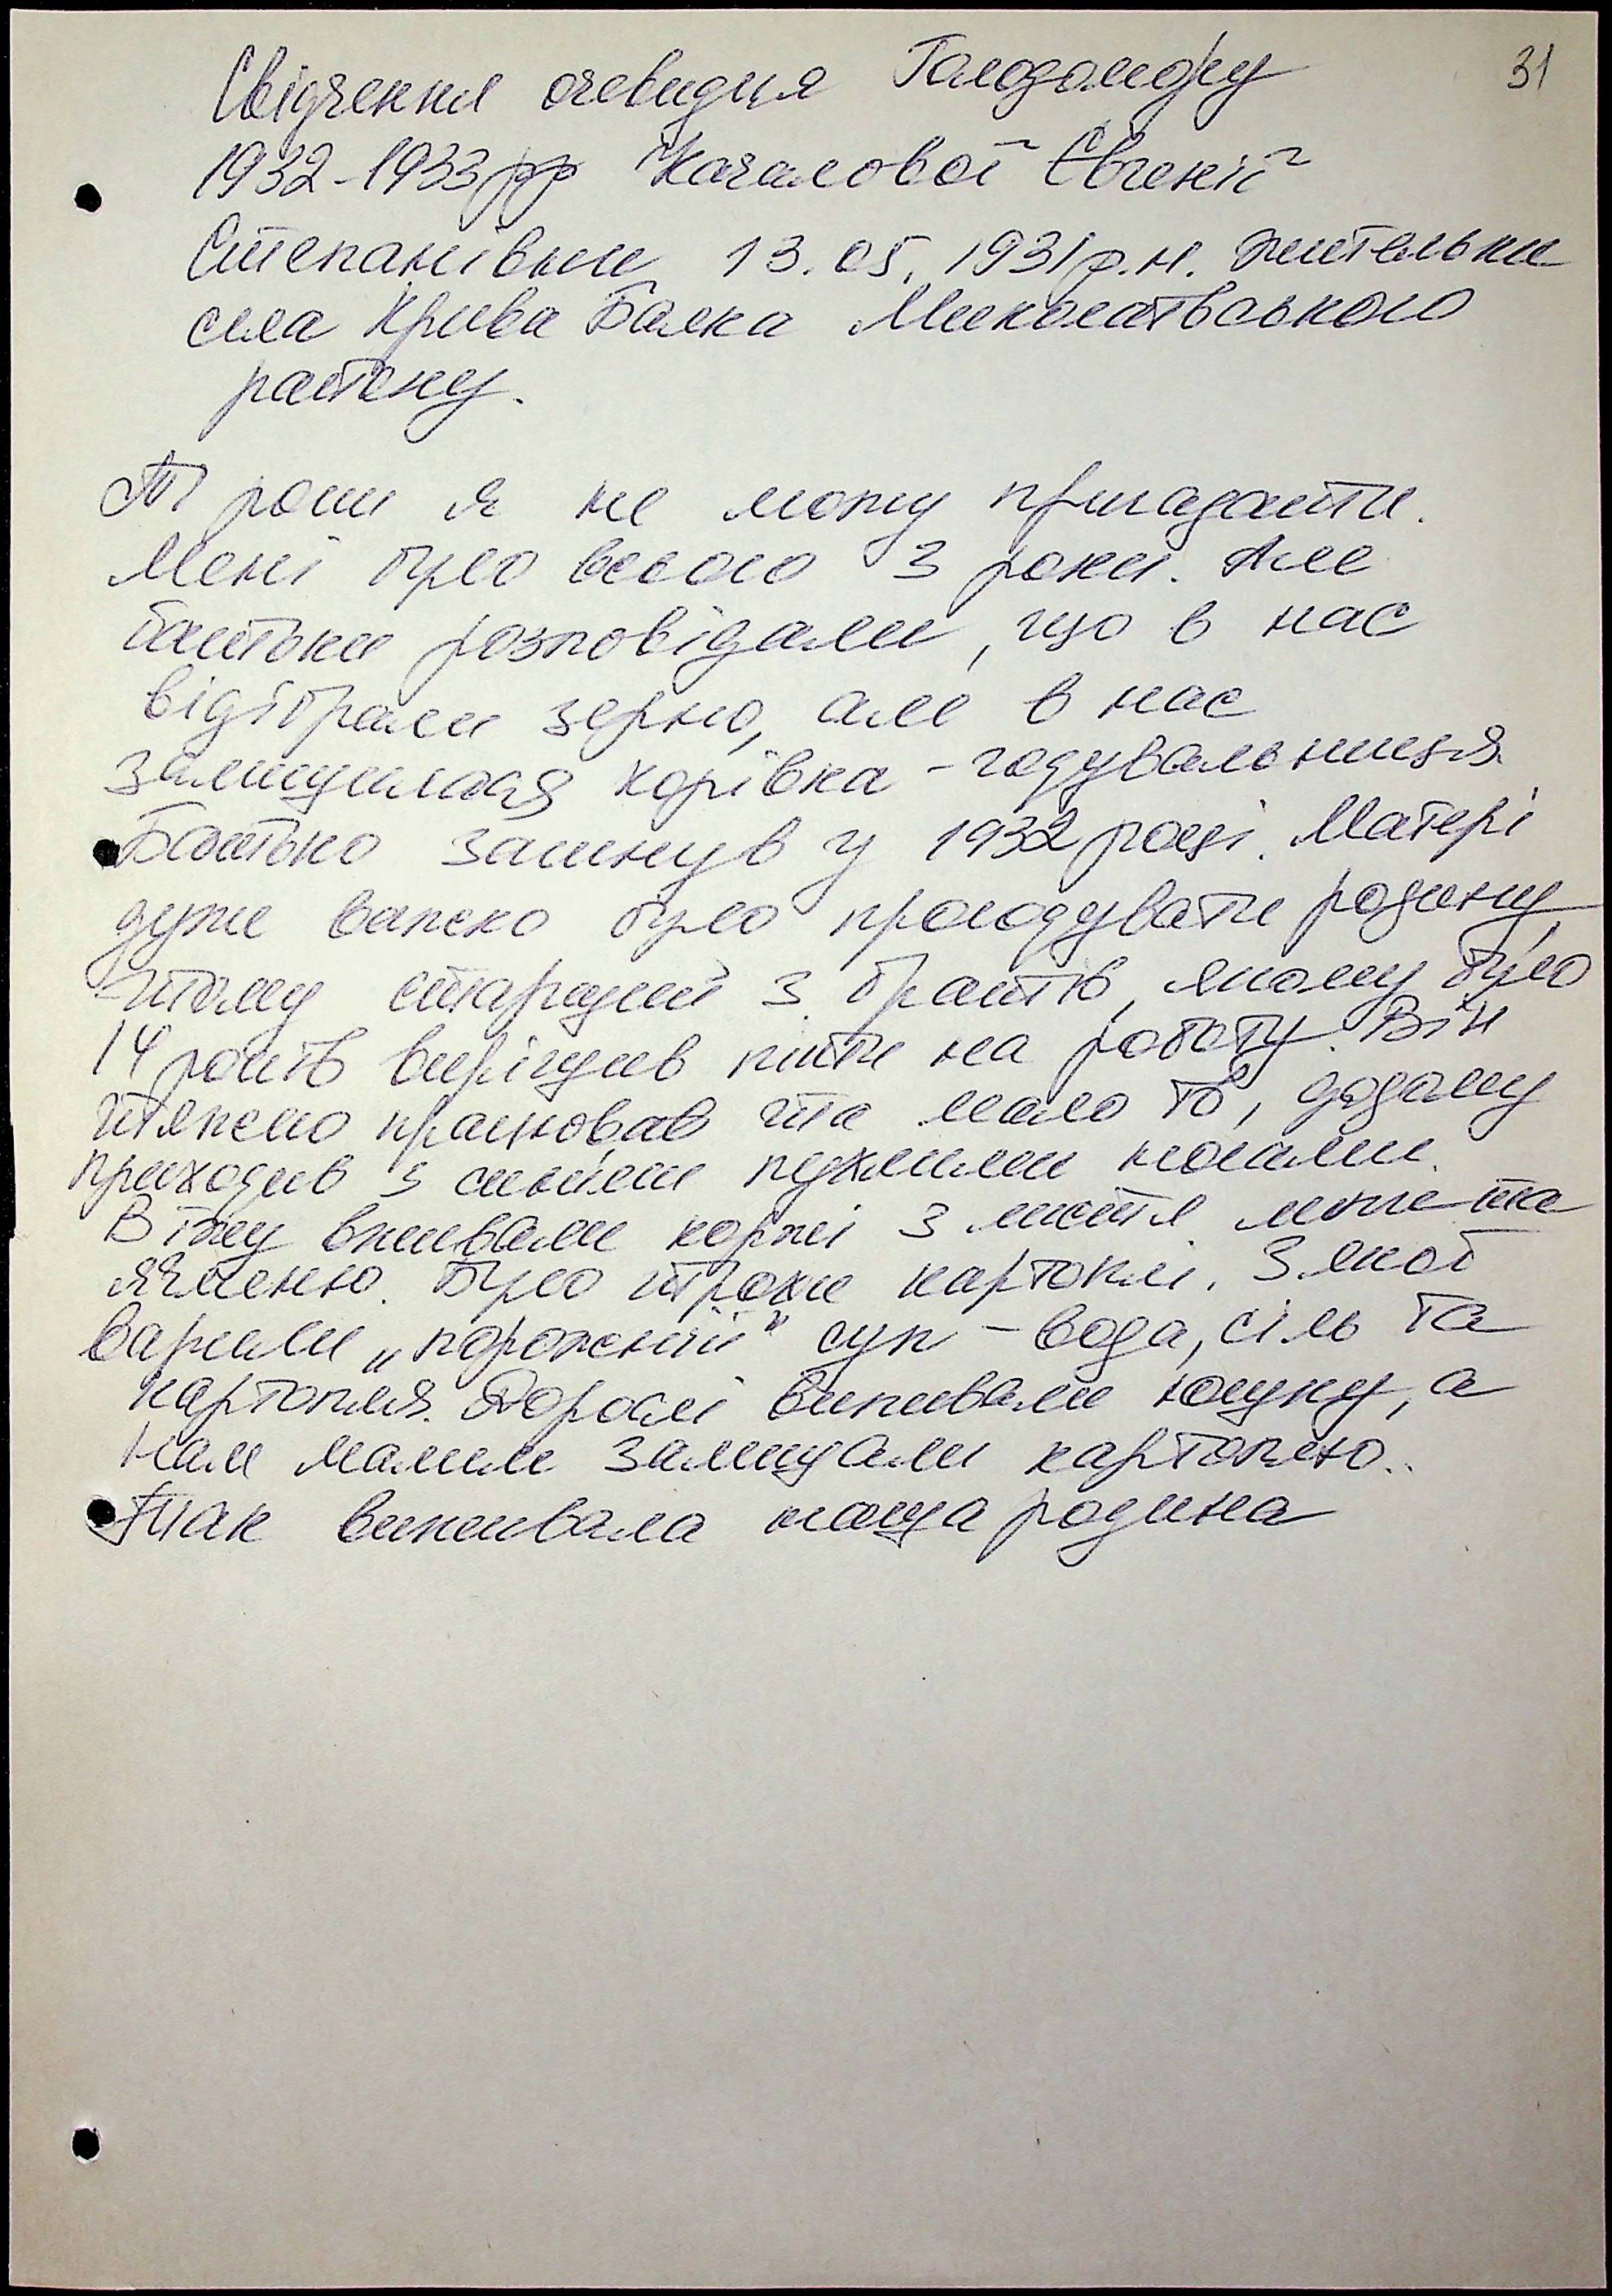 31
Свідчення очевидця Голодомору
1932-1933рр Качалової Євгенії
Степанівни 13.05.1931р.н. жительки
села Крива Балка Миколаївського
району.
Ті роки я не можу пригадати.
Мені було всього 3 роки. Але
батьки розповідали, що в нас
відібрали зерно, але в нас
залишилася корівка - годувальниця.
Батько загинув у 1932 році. Матері
дуже важко було прогодувати родину,
тому старший з братів, якому було
14 років вирішив піти на роботу. Він
тяжко працював та мало їв, додому
приходив з синіми пухлими ногами.
В їжу вживали коржі з листя
ячменю. Було трохи картоплі. З якої
варили „порожній" суп - вода, сіль та
картопля. Дорослі випивали юшку, а
нам малим залишали картоплю..
Так виживала наша родина